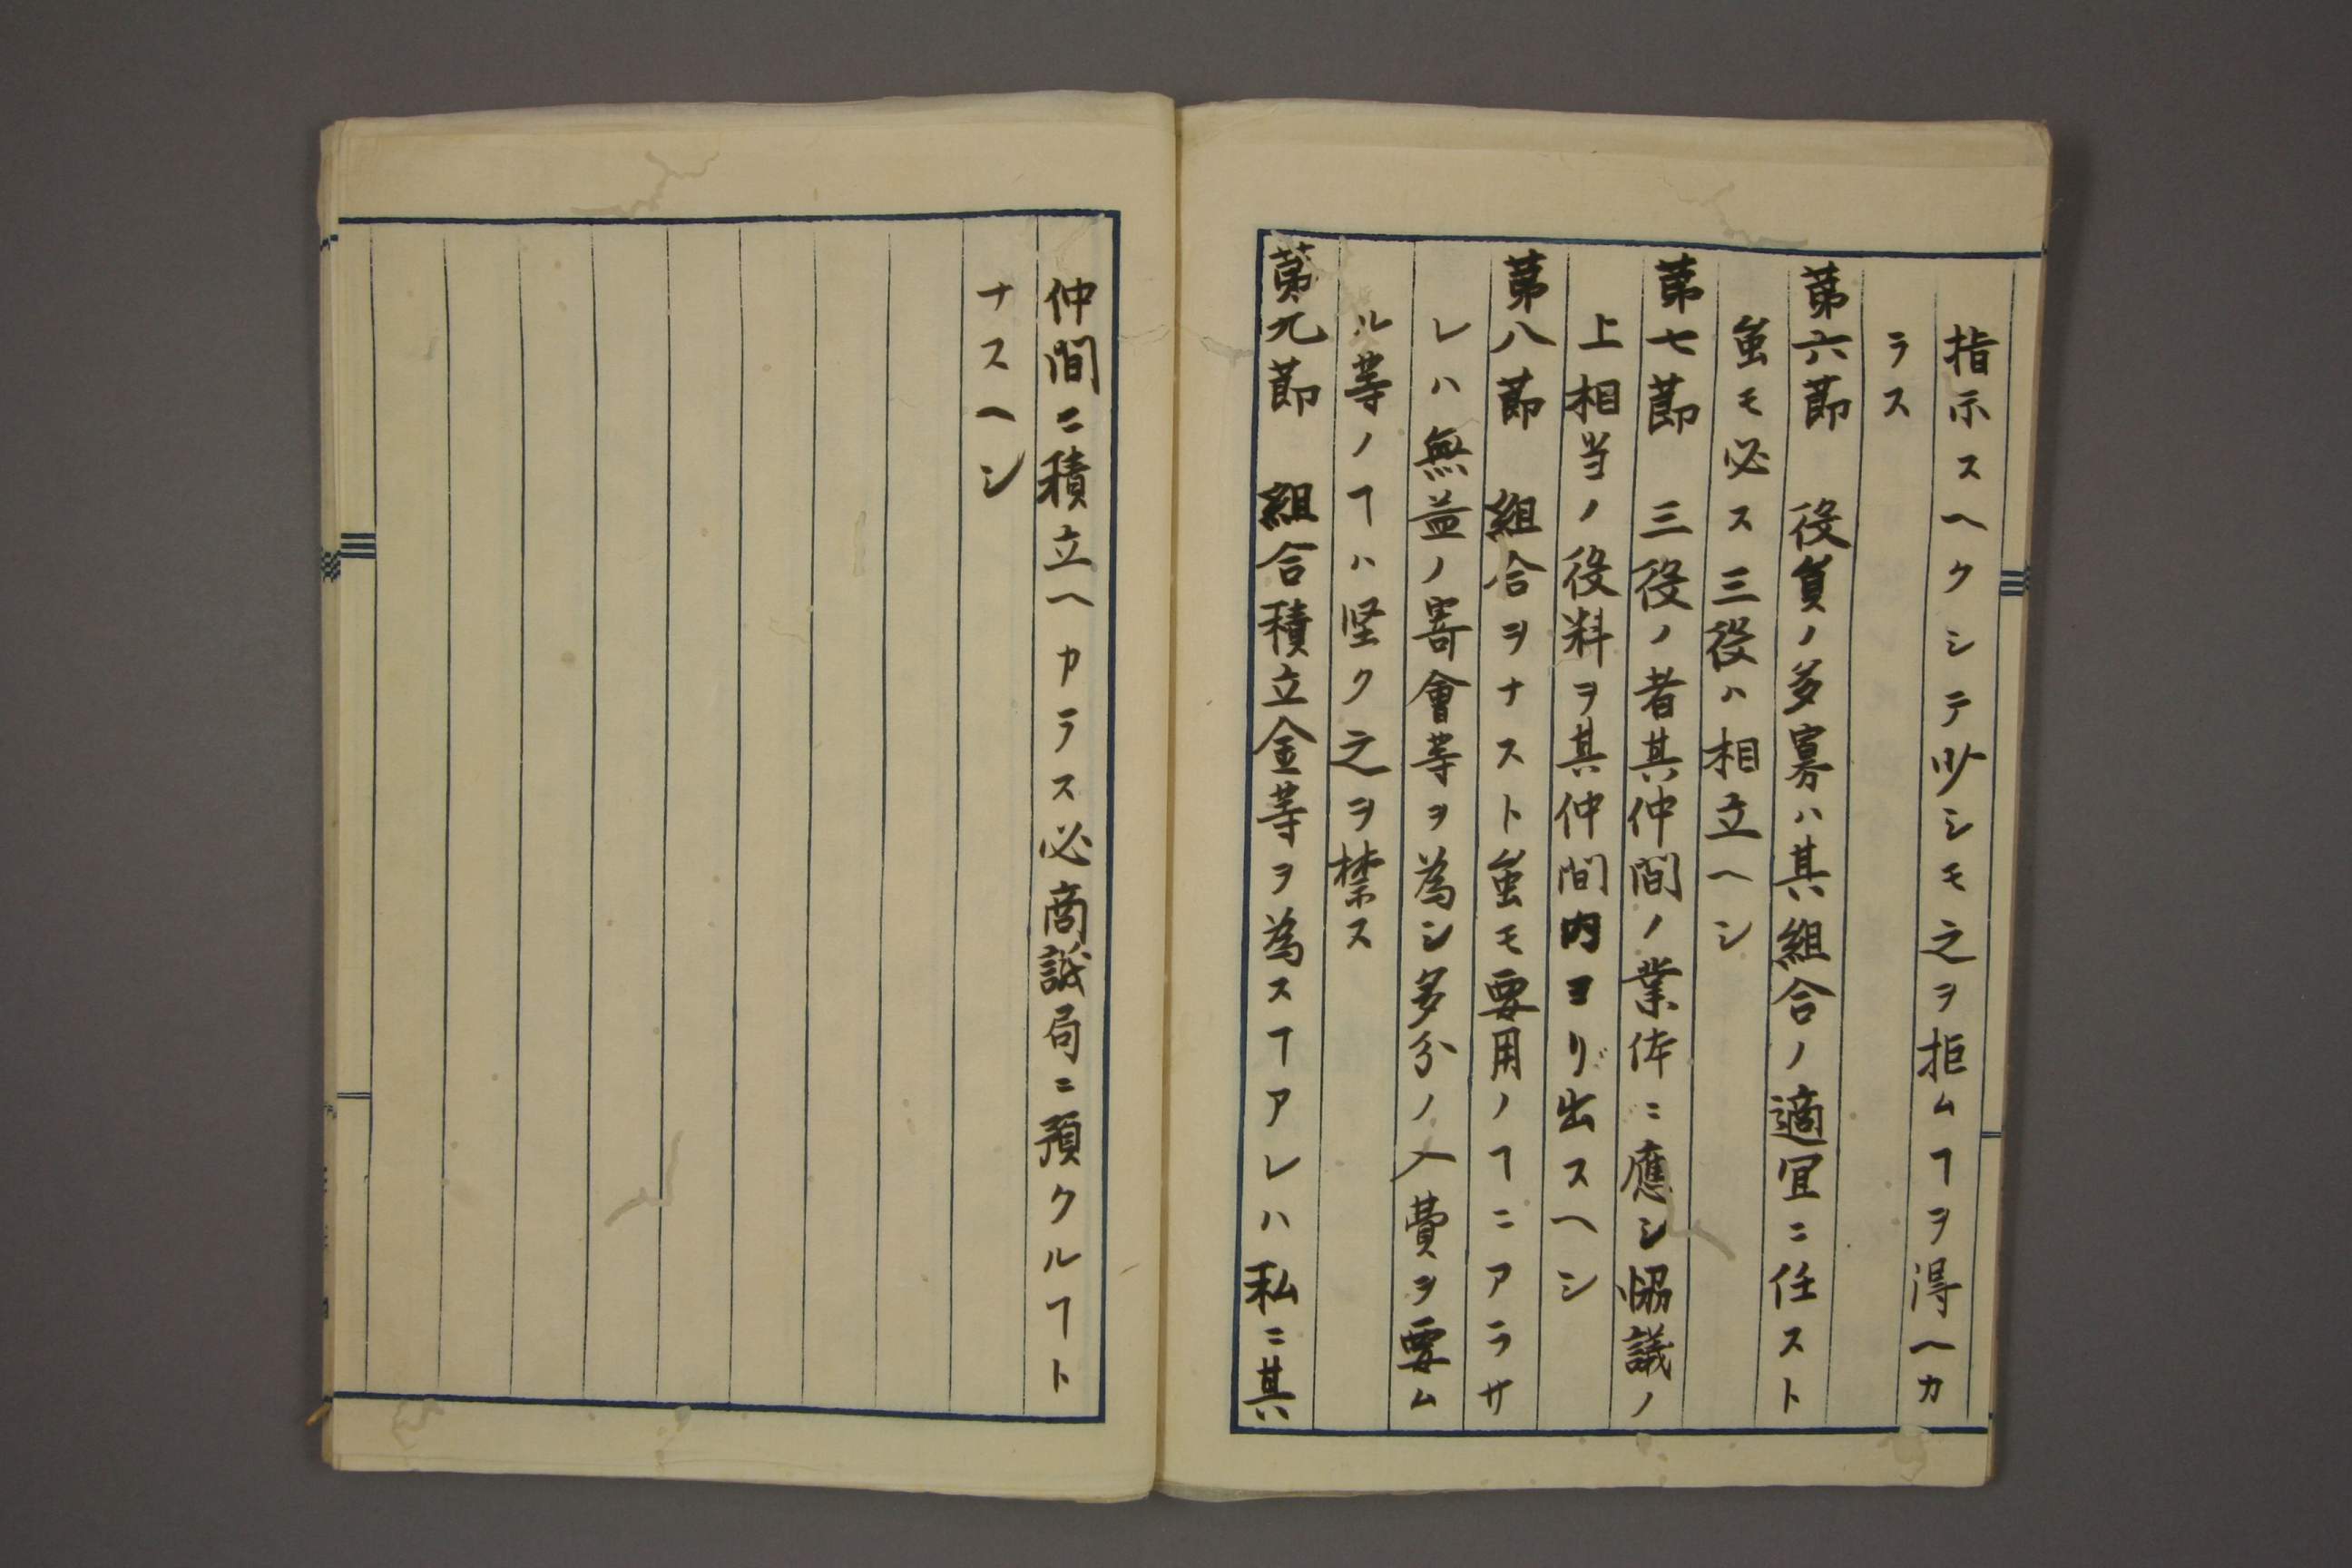 指示スヘクシテ少シモ之ヲ拒ムヿヲ得ヘカ
ラス
第六節 役員ノ多寡ハ其組合ノ適宜ニ任スト
雖モ必ス三役ハ相立ヘシ
第七節 三役ノ者其仲間ノ業体ニ應シ協議ノ
上相当ノ役料ヲ其仲間内ヨリ出スヘシ
第八節 組合ヲナスト雖モ要用ノヿニアラサ
レハ無益ノ寄會等ヲ為シ多分ノ入費ヲ要ム
ル等ノヿハ堅ク之ヲ禁ス
第九節 組合積立金等ヲ為スヿアレハ私ニ其
仲間ニ積立ヘカラス必商誠局ニ預クルヿト
ナスヘシ